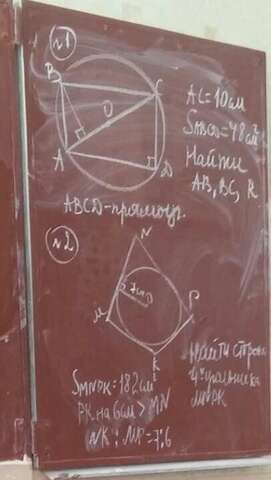 №1
B
C
O
A
D
AC=10см
SABCD=48см²
Найти
AB, BC, R
ABCD-прямоуг.
№2
N
7см
M
P
K
SMNPK=182см²
PK на 6см > MN
NK : MP=7:6
Найти сторон
4х угольника
MNPK